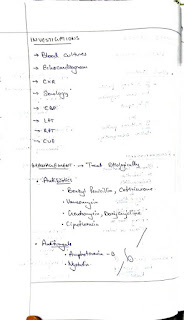 INVESTIGATIONS
→ Blood cultures
→ Echocardiogram
→ CXR
→ Serology
→ CRP
→ LFT
→ RFT
→ CUE
MANAGEMENT → Treat Etiologically
• Antibiotics
• Benzyl Penicillin, Ceftriaxone
• Vancomycin
• Gentamycin, Doxycycline
• Ciprofloxacin
• Antifungals
• Amphotericin - B
• Nystatin